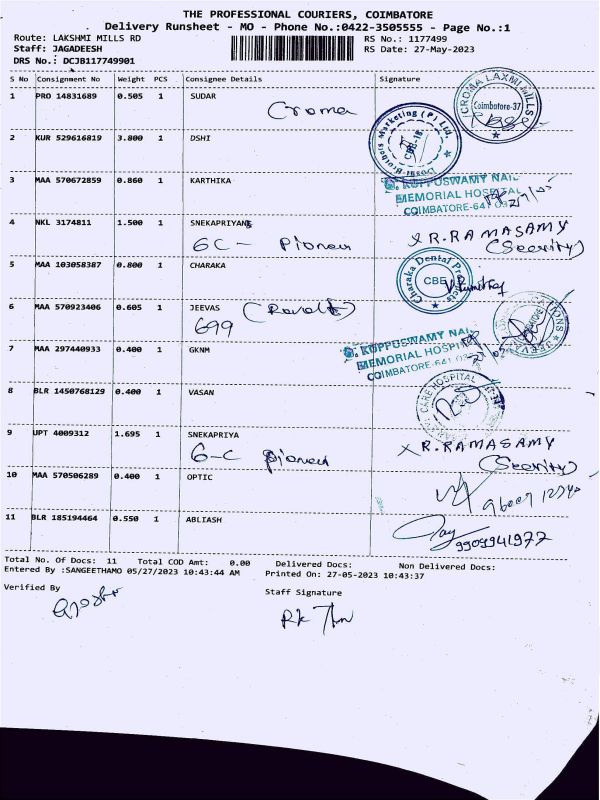 THE PROFESSIONAL COURIERS, COIMBATORE
Delivery Runsheet - MO - Phone No.:0422-3505555 - Page No.:1
Route: LAKSHMI MILLS RD RS No.: 1177499
Staff: JAGADEESH RS Date: 27-May-2023
DRS No.: DCJB117749901
S No Consignment No Weight PCS Consignee Details Signature
1 PRO 14831689 0.505 1 SUDAR
Croma
CROMA LAXMI MILLS
Coimbatore-37
2 KUR 529616819 3.800 1 DSHI
Marketing (P) Ltd.
CBE-18
3 MAA 570672859 0.860 1 KARTHIKA
G. KUPPUSWAMY NAI
MEMORIAL HOSPITAL
COIMBATORE-641 037
4 NKL 3174811 1.500 1 SNEKAPRIYANS
6C - Pioneer
X R.RAMASAMY
(Seerity)
5 MAA 103058387 0.800 1 CHARAKA
Charaka Dental Products
CBE
6 MAA 570923406 0.605 1 JEEVAS
699
7 MAA 297440933 0.400 1 GKNM
G. KUPPUSWAMY NAI
MEMORIAL HOSPI
COIMBATORE-641 037
8 BLR 1450768129 0.400 1 VASAN
CARE HOSPITAL
9 UPT 4009312 1.695 1 SNEKAPRIYA
6-C Pioneer
X R.RAMASAMY
(Seerity)
10 MAA 570506289 0.400 1 OPTIC
11 BLR 185194464 0.550 1 ABLIASH
9909941977
Total No. Of Docs: 11 Total COD Amt: 0.00 Delivered Docs: Non Delivered Docs:
Entered By :SANGEETHAMO 05/27/2023 10:43:44 AM Printed On: 27-05-2023 10:43:37
Verified By Staff Signature